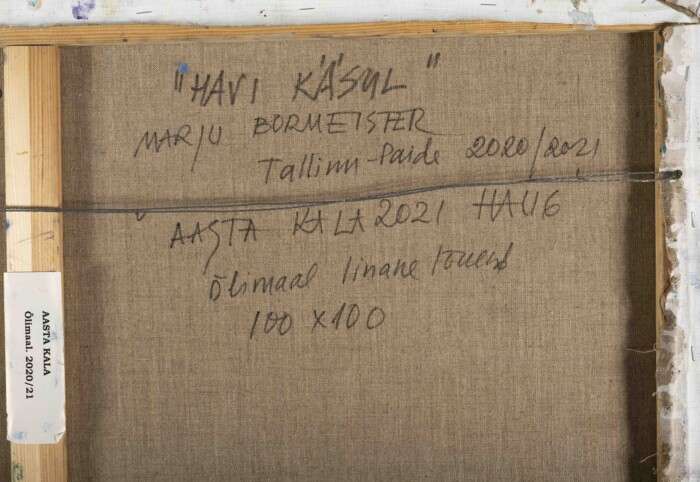 "HAVI KÄSUL"
MARJU BORMEISTER
Tallinn-Paide 2020/2021
AASTA KALA 2021 HAUG
Õlimaal linane lõuend
100 x 100
AASTA KALA
Õlimaal. 2020/21